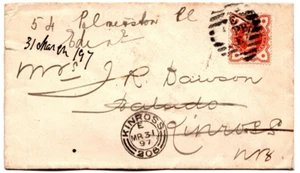 54 Palmerston Pl
Edinr
31 March /97
Mrs J. R. Dawson
Saludo
Kinross
N.B.
KINROSS
E
MR 31
97